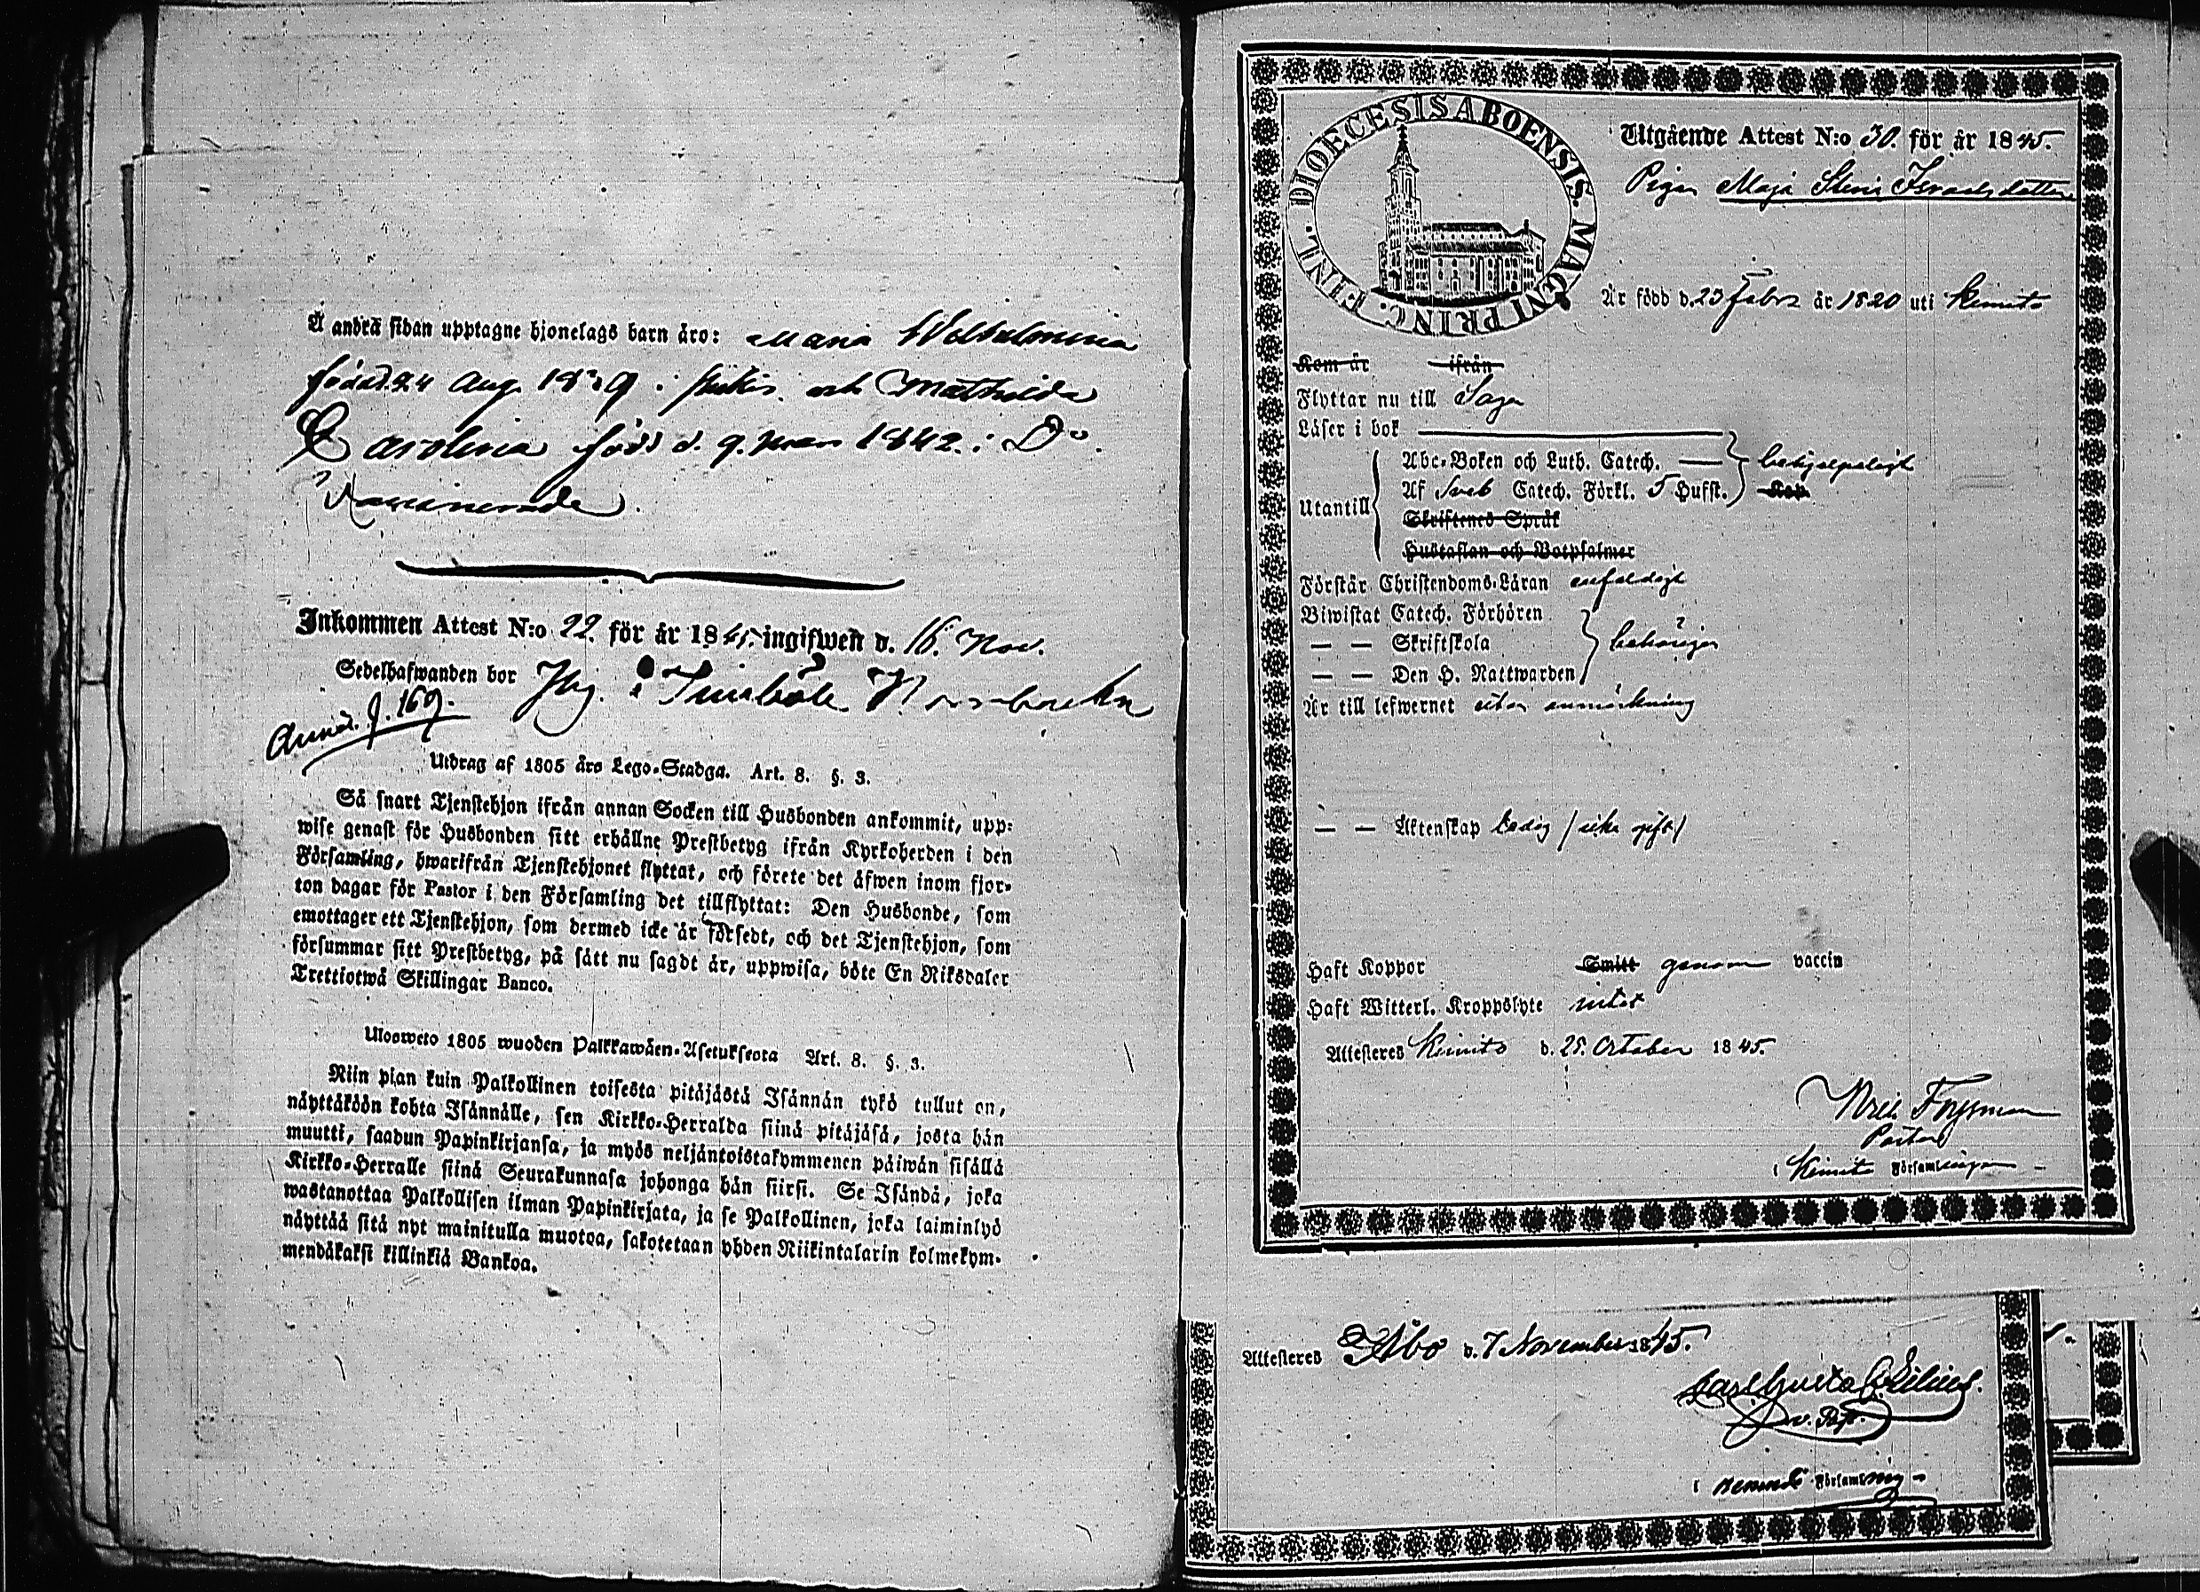 Å andra sidan upptagne hjonelags barn äro: Maria Wilhelmina
född d. 24 Aug. 1839 i och Mathilda
Carolina född d. 9. 1842. i Do.
Vaccinerade.
Inkommen Attest N:o 22. för år 1845 ingifwen d. 16. Nov.
Sedelhafwanden bor
Annot. p. 169.
Utdrag af 1805 års Lego-Stadga. Art. 8. §. 3.
Så snart Tjenstehjon ifrån annan Socken till Husbonden ankommit, upp-
wise genast för Husbonden sitt erhållne Prestbetyg ifrån Kyrkoherden i den
Församling, hwarifrån Tjenstehjonet flyttat, och förete det äfwen inom fjor-
ton dagar för Pastor i den Församling det tillflyttat: Den Husbonde, som
emottager ett Tjenstehjon, som dermed icke är försedt, och det Tjenstehjon, som
försummar sitt Prestbetyg, på sätt nu sagdt är, uppwisa, böte En Riksdaler
Trettiotwå Skillingar Banco.
Ulosweto 1805 wuoden Palkkawäen-Asetuksesta Art. 8. §. 3.
Niin pian kuin Palkollinen toisesta pitäjästä Isännän tykö tullut on,
näyttäköön kohta Isännälle, sen Kirkko-Herralda siinä pitäjäsä, josta hän
muutti, saadun Papinkirjansa, ja myös neljäntoistakymmenen päiwän sisällä
Kirkko-Herralle siinä Seurakunnasa johonga hän siirsi. Se Isändä, joka
wastanottaa Palkollisen ilman Papinkirjata, ja se Palkollinen, joka laiminlyö
näyttää sitä nyt mainitulla muotoa, sakotetaan yhden Riikintalarin kolmekym-
mendäkaksi killinkiä Bankoa.
DIOECESIS ABOENSIS. MAGNI PRINC. FINL.
Utgående Attest N:o 30. för år 1845.
Pigan Maja Stina Israelsdotter
Är född d. 23 Febr år 1820 uti Kimito
Kom år ifrån
Flyttar nu till Sagu
Läser i bok
Abc-Boken och Luth. Catech. behjelpeligt
Utantill
Af Sveb Catech. Förkl. 5 Hufst.
Skriftenes Språk
Hustaflan och Botpsalmer
Förstår Christendoms-Läran enfaldigt
Biwistat Catech. Förhören
— — Skriftskola behörigen
— — Den H. Nattwarden
Är till lefwernet utan anmärkning
— — Äktenskap ledig /icke gift/
Haft Koppor Smitt genom vaccin
Haft Witterl. Kroppslyte intet
Attesteres Kimito d. 25. October 1845.
Pastor
i Kimito Församlingen
Attesteres Åbo d. 7 November 1845.
Carl Gustaf
v. Past.
i Församling